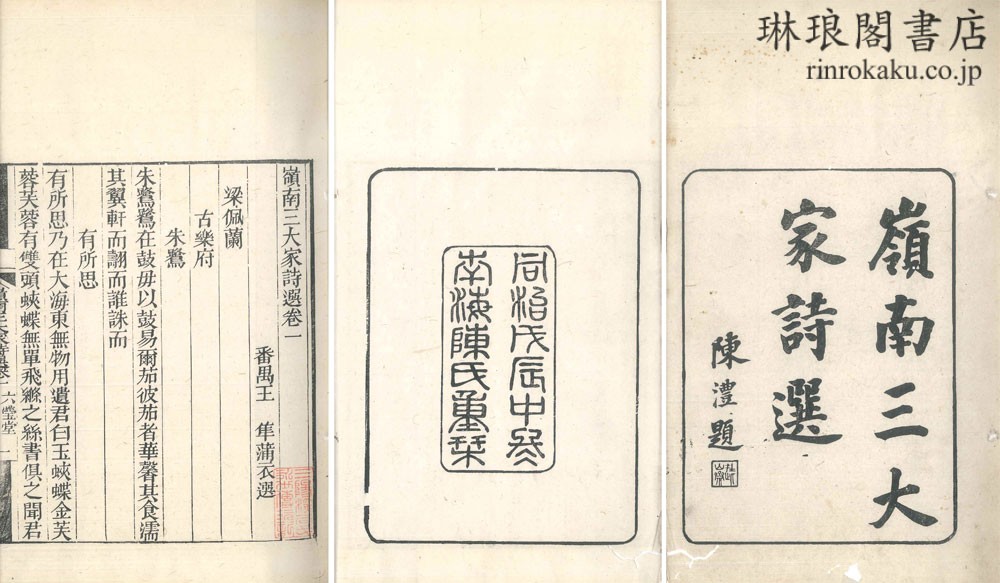 琳琅閣書店
rinrokaku.co.jp
嶺南三大
家詩選
陳澧題
同治戊辰中冬
南海陳氏重栞
嶺南三大家詩選卷一
番禺王 隼蒲衣選
梁佩蘭
古樂府
朱鷺
朱鷺鷺在鼓毋以鼓易爾茄彼茄者華馨其食濡
其翼軒而翮而誰誅而
有所思
有所思乃在大海東無物用遺君白玉蛺蝶金芙
蓉芙蓉有雙頭蛺蝶無單飛緘之絲書俱之聞君
六瑩堂 一